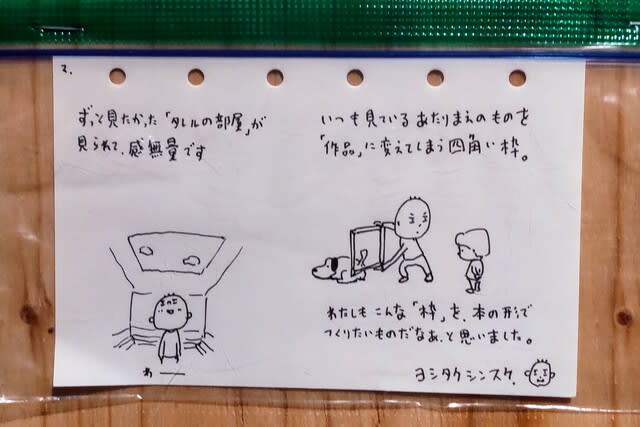 2.
ずっと見たかった「タレルの部屋」が
見られて、感無量です
あ――
いつも見ているあたりまえのものを
「作品」に変えてしまう四角い枠。
わたしもこんな「枠」を、本の形で
つくりたいものだなぁ、と思いました。
ヨシタケシンスケ.